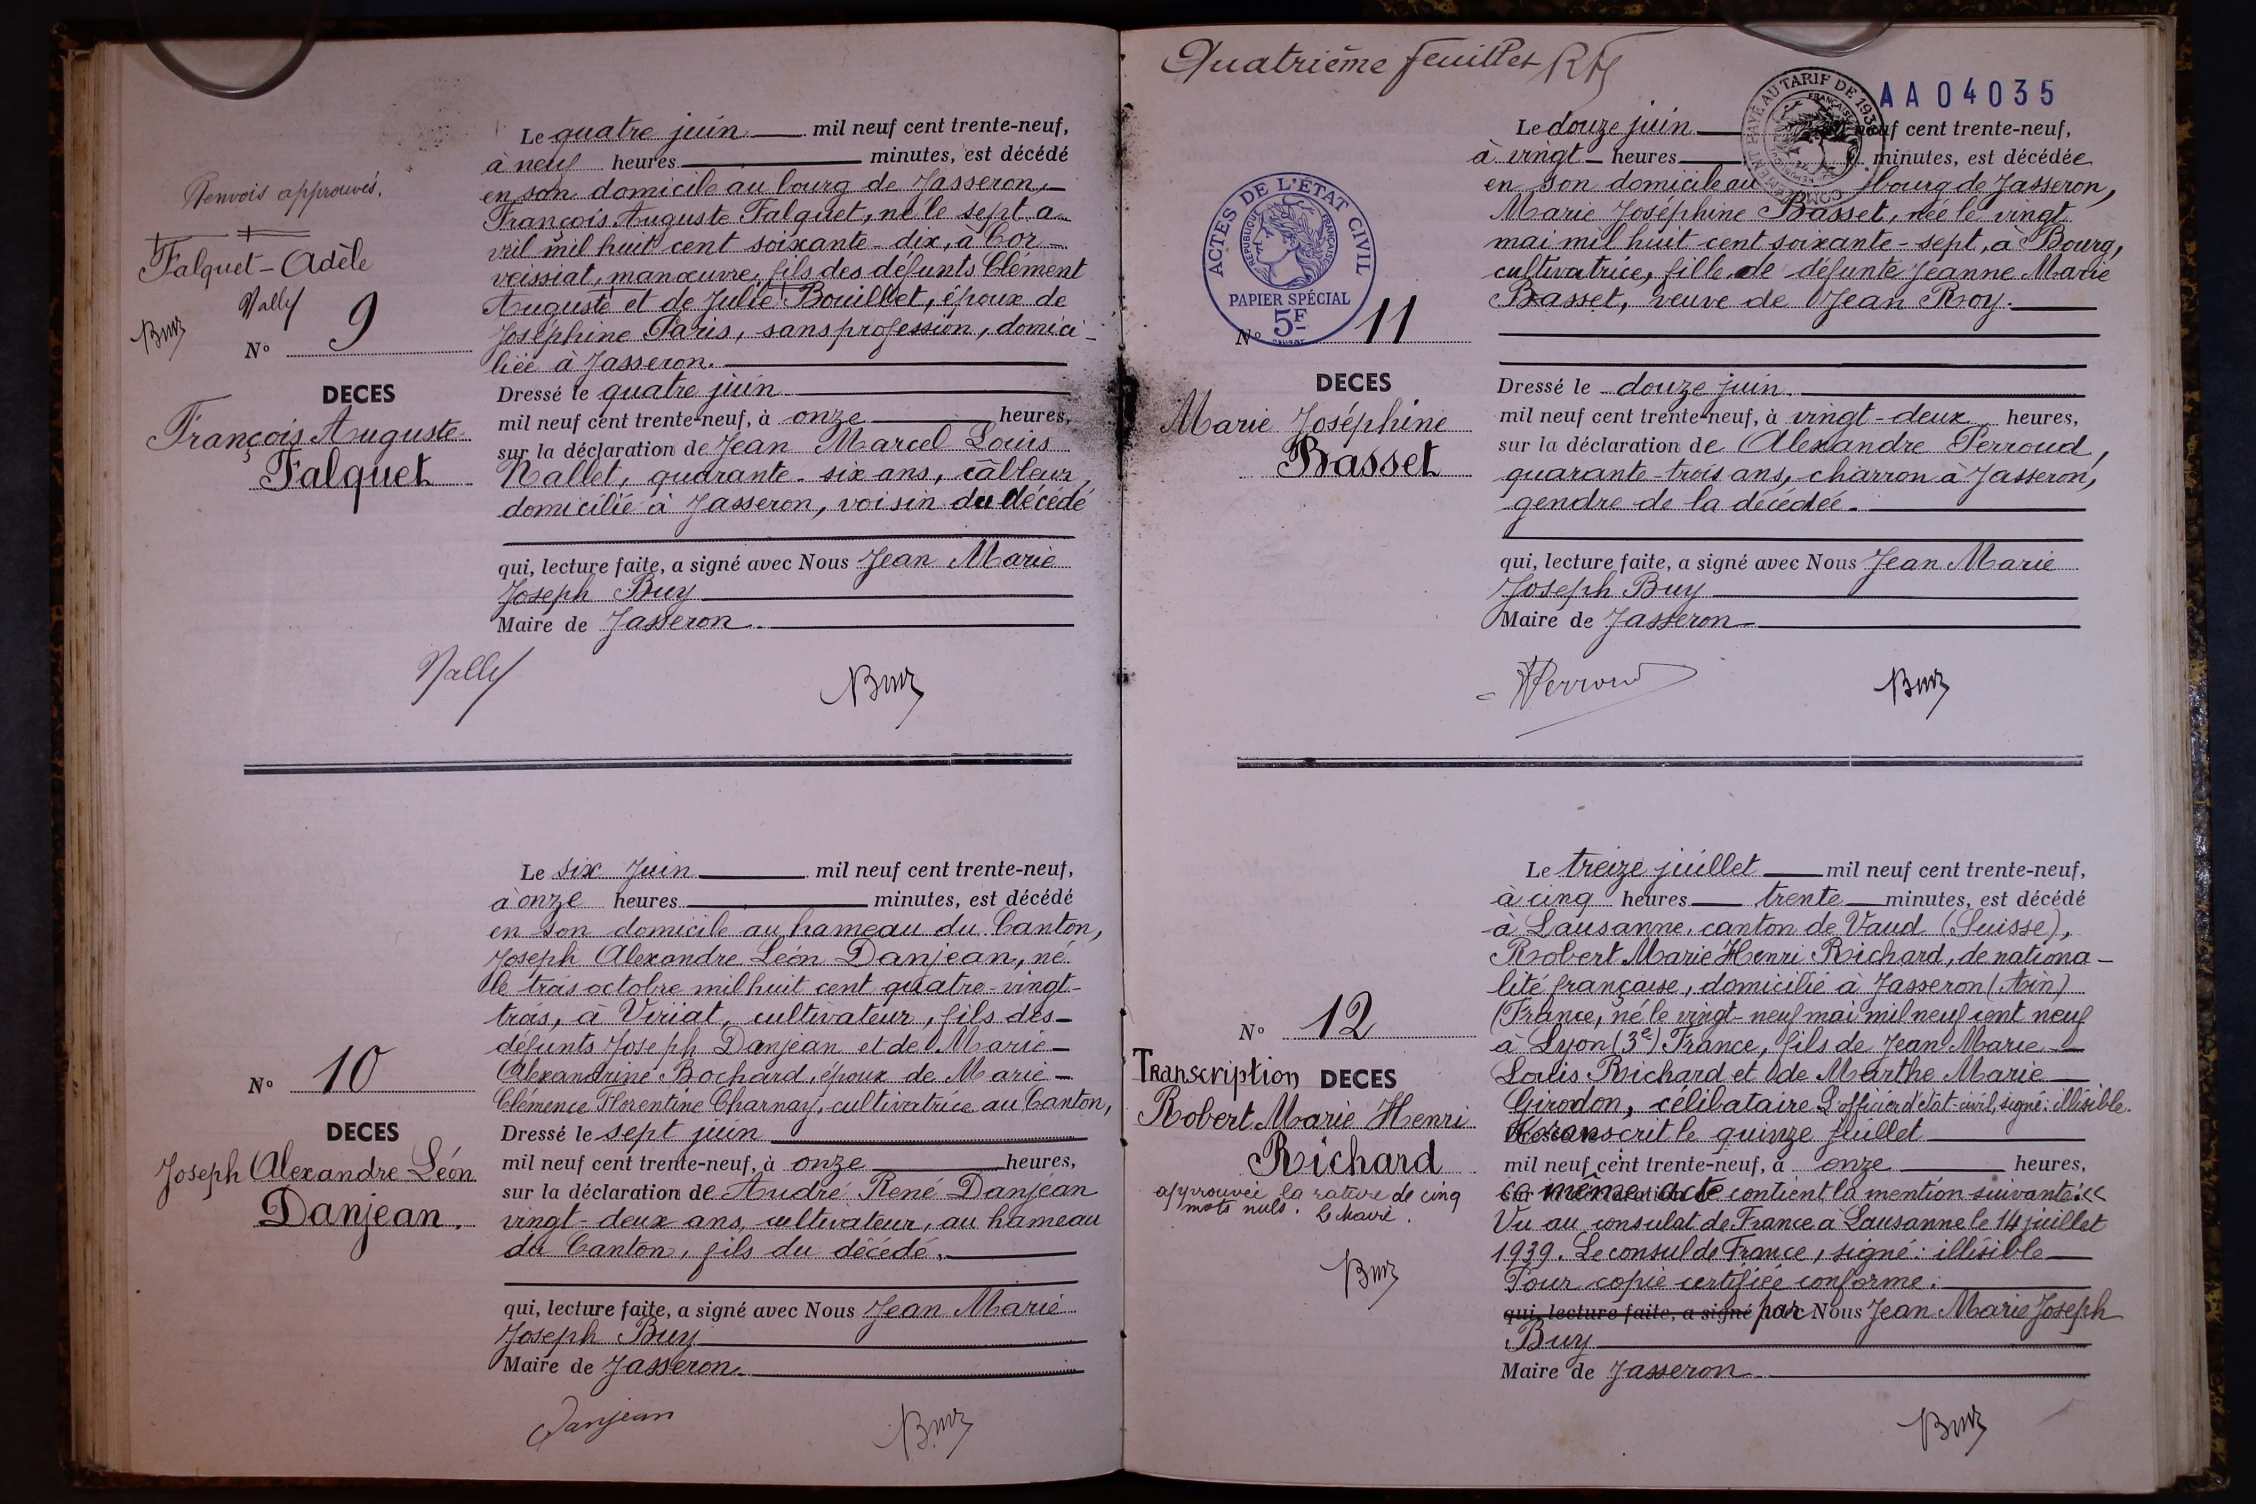 Renvois approuvés.
Falquet - Adèle
Nally
Buy
N° 9
DECES
François Auguste
Falquet
Le quatre juin mil neuf cent trente-neuf,
à neuf heures minutes, est décédé
en son domicile au bourg de Jasseron,
François Auguste Falquet, né le sept a-
vril mil huit cent soixante-dix, à Cor-
veissiat, manœuvre, fils des défunts Clément
Auguste et de Julie Bouillet, époux de
Joséphine Paris, sans profession, domici-
liée à Jasseron.
Dressé le quatre juin
mil neuf cent trente-neuf, à onze heures,
sur la déclaration de Jean Marcel Louis
Nallet, quarante-six ans, câbleur,
domicilié à Jasseron, voisin du décédé
qui, lecture faite, a signé avec Nous Jean Marie
Joseph Buy
Maire de Jasseron.
Nally Buy
N° 10
DECES
Joseph Alexandre Léon
Danjean.
Le six Juin mil neuf cent trente-neuf,
à onze heures minutes, est décédé
en son domicile au hameau du Canton,
Joseph Alexandre Léon Danjean, né
le trois octobre mil huit cent quatre-vingt-
trois, à Viriat, cultivateur, fils des
défunts Joseph Danjean et de Marie
Alexandrine Bochard, époux de Marie
Clémence Florentine Charnay, cultivatrice au Canton,
Dressé le sept juin
mil neuf cent trente-neuf, à onze heures,
sur la déclaration de André René Danjean
vingt-deux ans, cultivateur, au hameau
du Canton, fils du décédé.
qui, lecture faite, a signé avec Nous Jean Marie
Joseph Buy
Maire de Jasseron.
Danjean Buy
Quatrième feuillet
AA04035
ACTES DE L'ÉTAT CIVIL
RÉPUBLIQUE FRANÇAISE
PAPIER SPÉCIAL
5F
N° 11
DECES
Marie Joséphine
Basset
Le douze juin neuf cent trente-neuf,
à vingt heures minutes, est décédée
en son domicile au bourg de Jasseron,
Marie Joséphine Basset, née le vingt
mai mil huit cent soixante-sept, à Bourg,
cultivatrice, fille de défunte Jeanne Marie
Basset, veuve de Jean Roy.
Dressé le douze juin
mil neuf cent trente-neuf, à vingt-deux heures,
sur la déclaration de Alexandre Perroud,
quarante-trois ans, charron à Jasseron,
gendre de la décédée.
qui, lecture faite, a signé avec Nous Jean Marie
Joseph Buy
Maire de Jasseron
Perroud Buy
N° 12
Transcription DECES
Robert Marie Henri
Richard
approuvée la rature de cinq
mots nuls. Le Maire.
Buy
Le treize juillet mil neuf cent trente-neuf,
à cinq heures trente minutes, est décédé
à Lausanne, canton de Vaud (Suisse),
Robert Marie Henri Richard, de nationa-
lité française, domicilié à Jasseron (Ain)
(France, né le vingt-neuf mai mil neuf cent neuf
à Lyon (3e) France, fils de Jean Marie
Louis Richard et de Marthe Marie
Girodon, célibataire. L'officier d'état-civil, signé: illisible.
Transcrit le quinze juillet
mil neuf cent trente-neuf, à onze heures,
ce même acte contient la mention suivante: "
Vu au consulat de France à Lausanne le 14 juillet
1939. Le consul de France, signé: illisible
Pour copie certifiée conforme.
qui, lecture faite, a signé par Nous Jean Marie Joseph
Buy
Maire de Jasseron
Buy